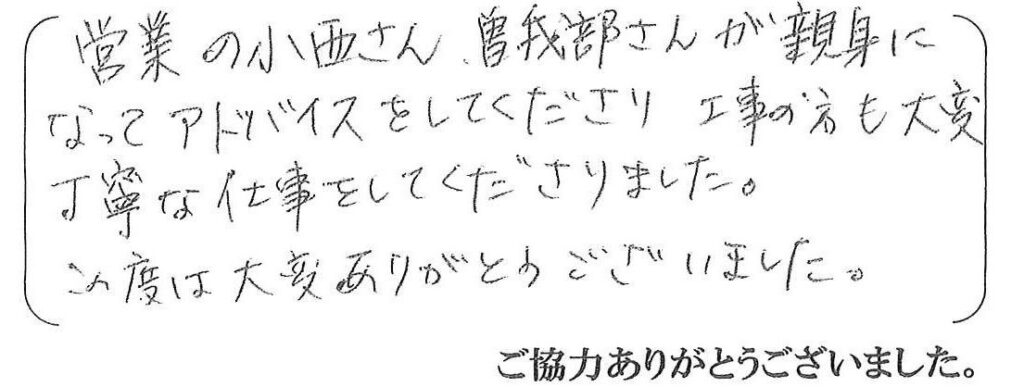 営業の小西さん、曽我部さんが親身に
なってアドバイスをしてくださり 工事の方も大変
丁寧な仕事をしてくださりました。
この度は大変ありがとうございました。
ご協力ありがとうございました。